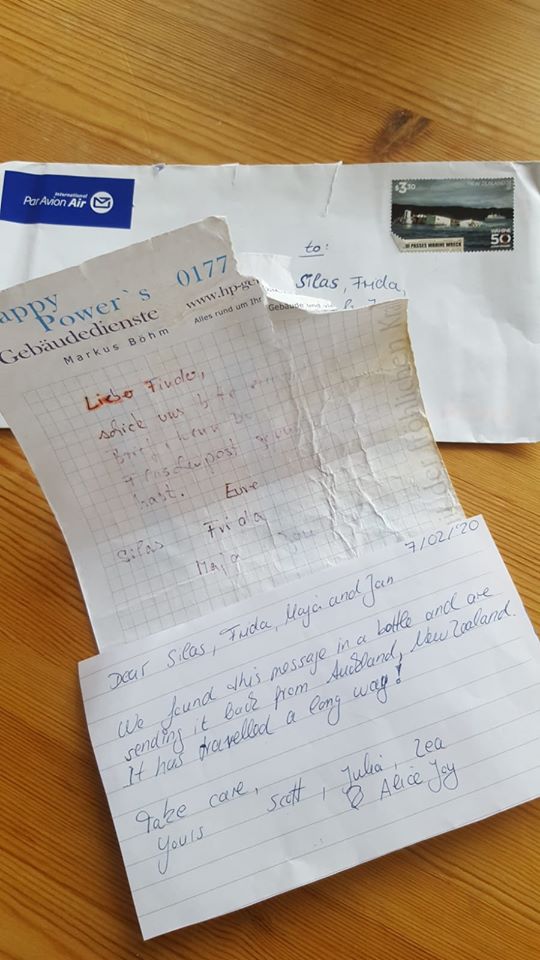 International
Par Avion Air
$3.30
NEW ZEALAND
...III PASSES WAHINE WRECK
WAHINE
50
to:
Silas, Frida,
appy
Power`s 0177
Gebäudedienste www.hp-ge
Markus Böhm Alles rund um Ihr Gebäude und
Lieber Finder,
schick uns bitte
Brief, wenn
Flaschenpost
hast.
Eure
Silas Frida
Maja Jan
7/02/20
Dear Silas, Frida, Maja and Jan
We found this message in a bottle and are
sending it back from Auckland, New Zealand.
It has travelled a long way!
Take care,
Yours Scott, Julia, Lea
& Alice Joy